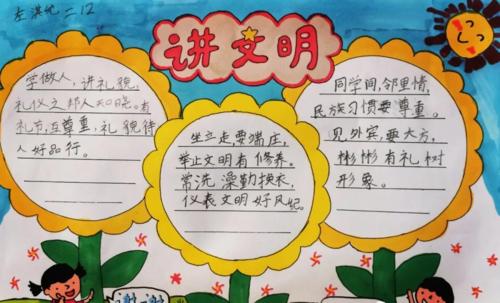 左淇允 二12
讲文明
学做人，讲礼貌，
礼仪之邦人知晓。有
礼节，互尊重，礼貌待
人好品行。
坐立走，要端庄，
举止文明有修养。
常洗澡勤换衣，
仪表文明好风纪。
同学间，邻里情，
民族习惯要尊重。
见外宾，要大方，
彬彬有礼树
形象。
谢谢